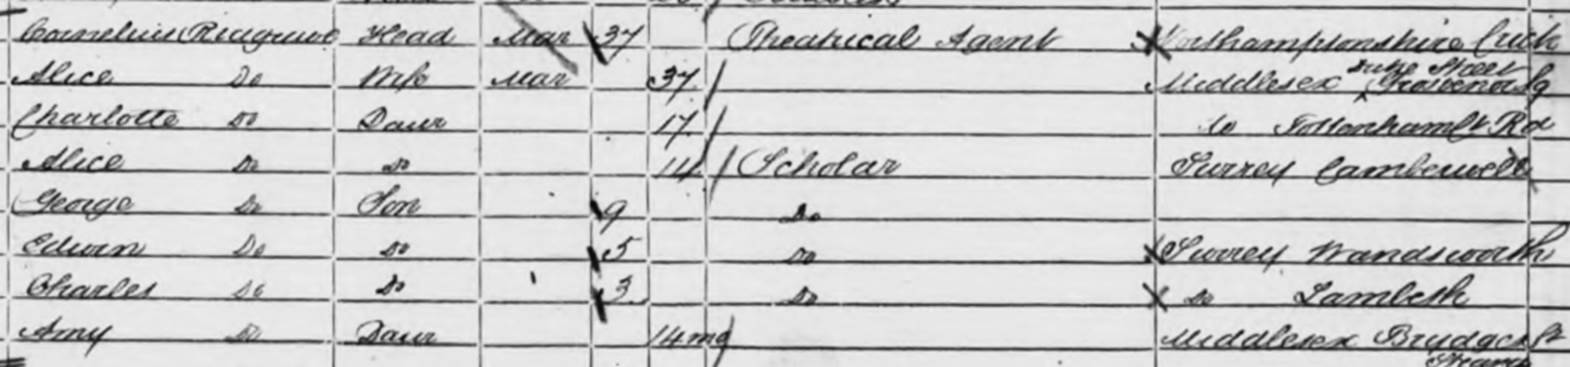 Cornelius Head Mar 37 Theatrical Agent Northamptonshire Crick
Alice Do Wife Mar 37 Middlesex Duke Street Grosvenor Sq
Charlotte Do Daur 17 Do Rd
Alice Do Do Scholar Surrey Camberwell
George Do Son 9 Do
Edwin Do Do 5 Do Surrey Wandsworth
Charles Do Do 3 Do Do Lambeth
Amy Do Daur 14 mo Middlesex